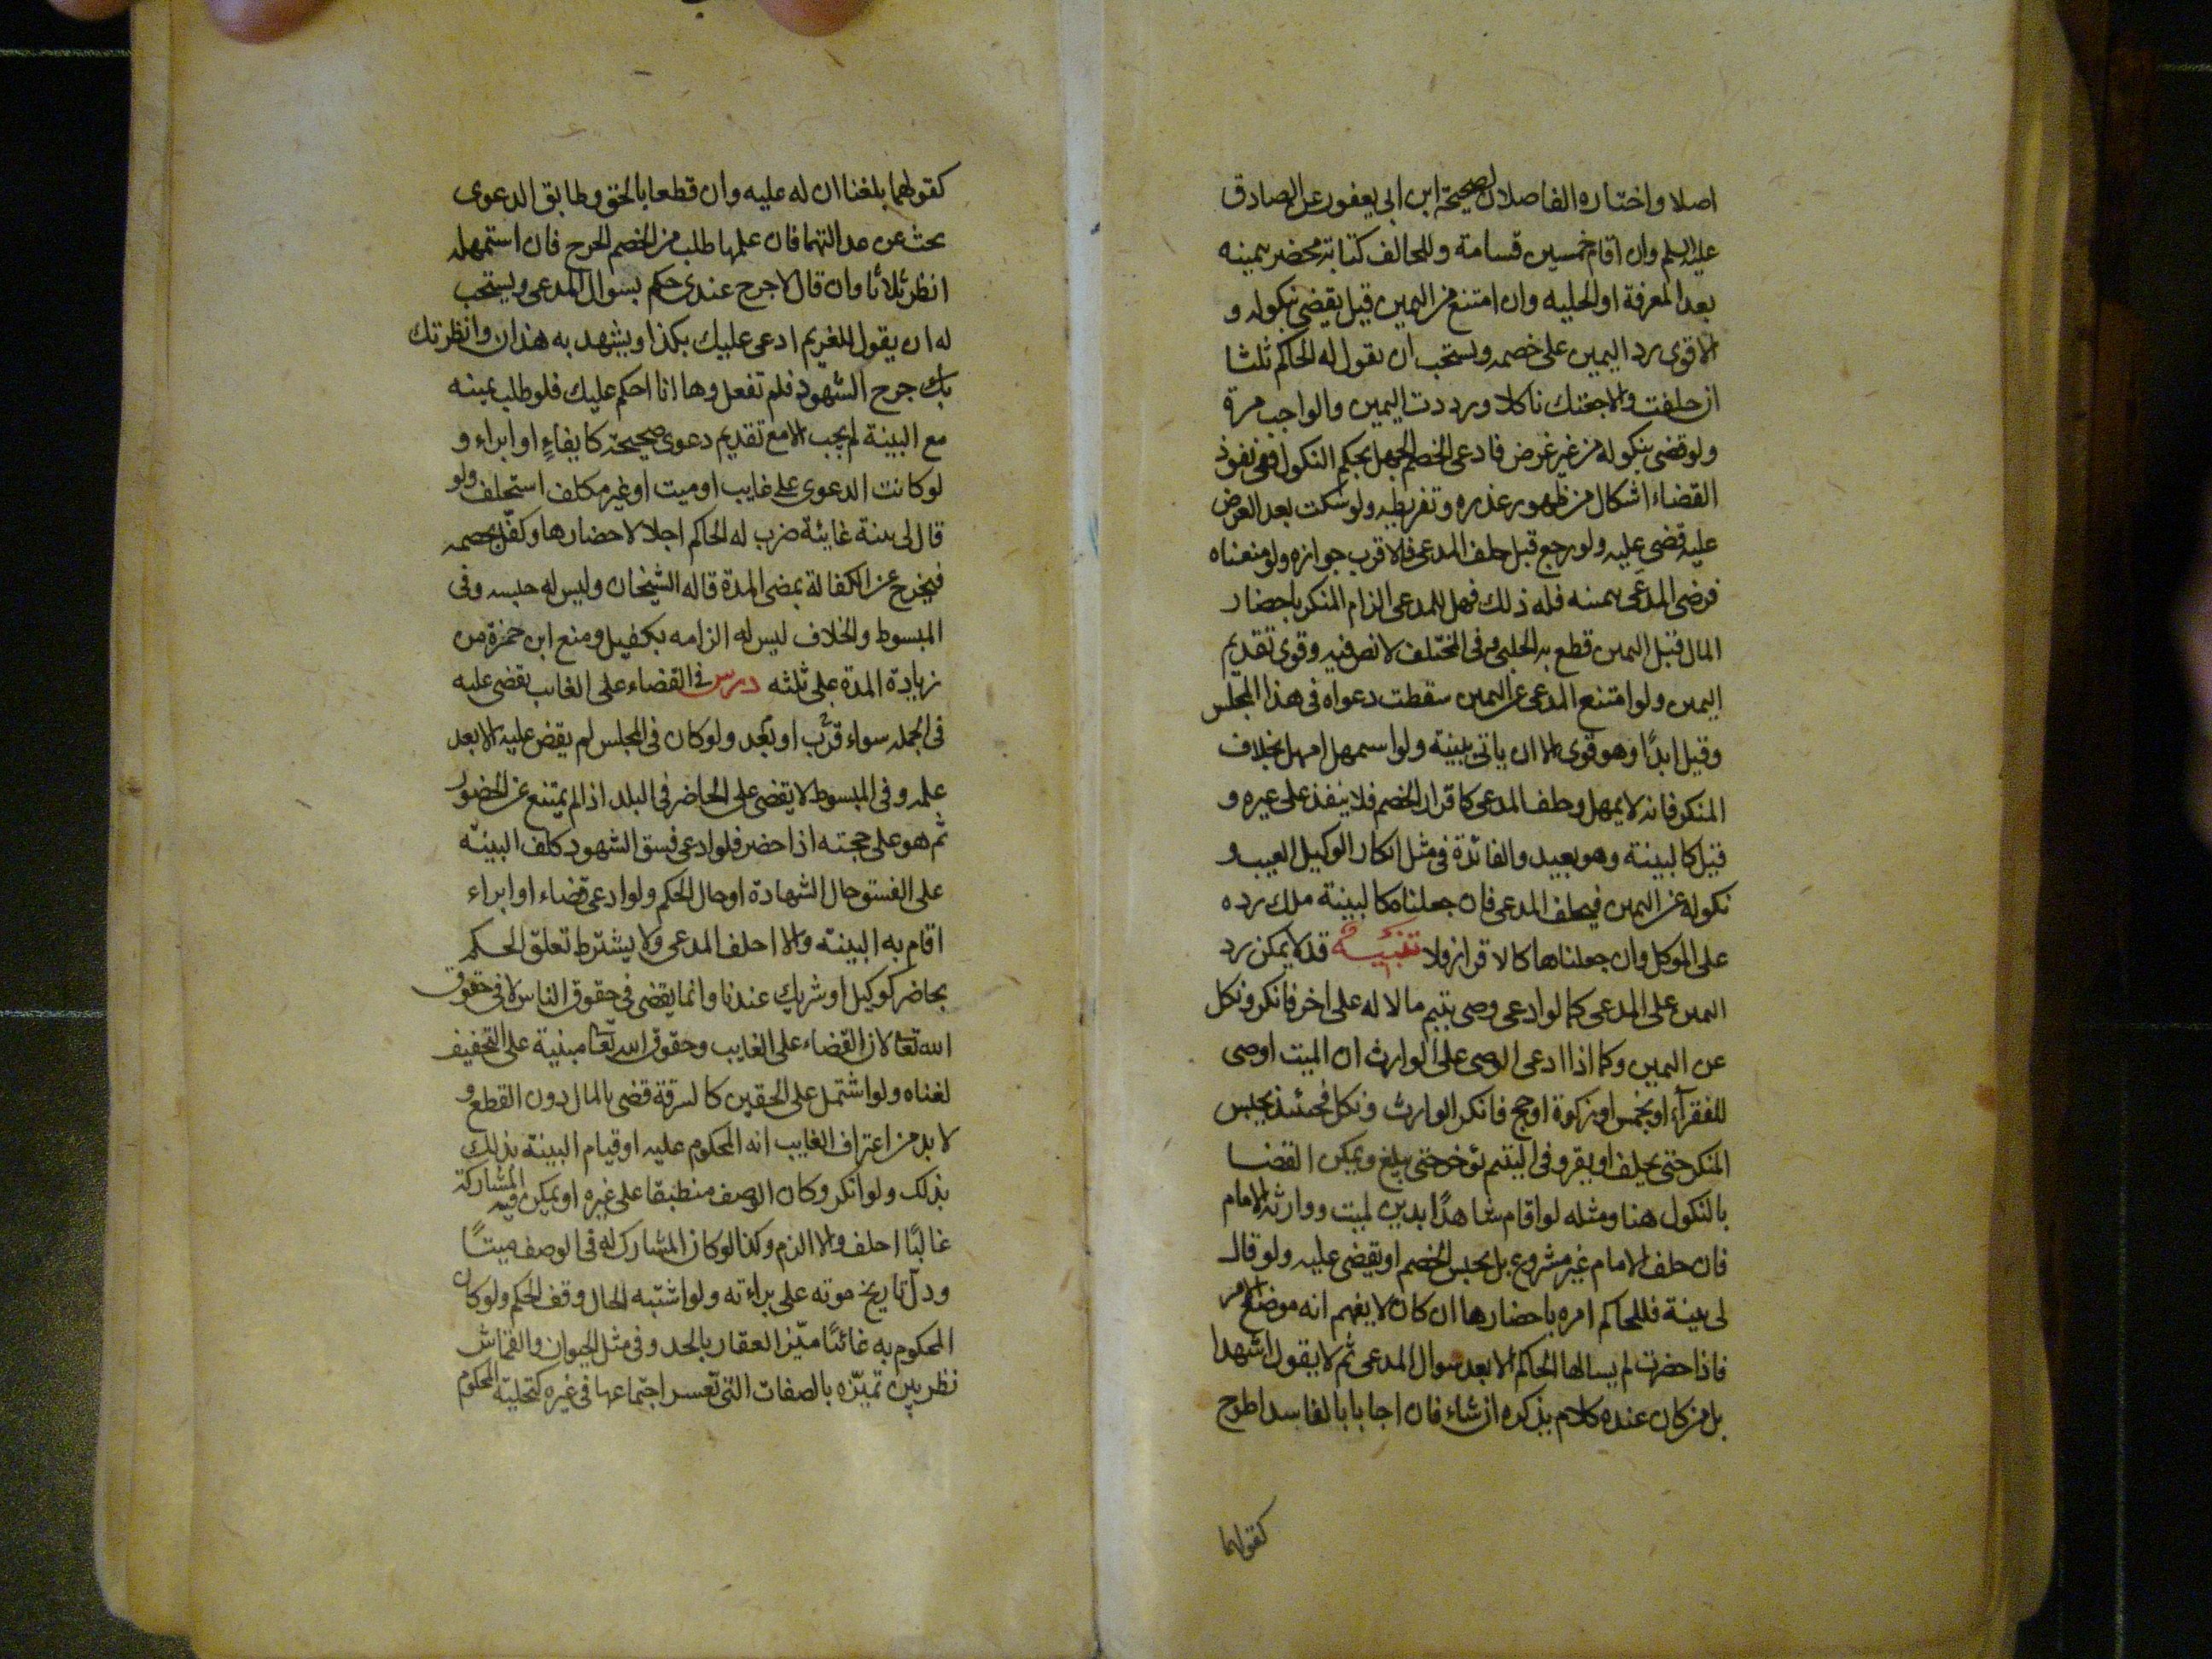 اصلا واختاره الفاضلان لصحيحة ابن ابي يعفور عن الصادق
عليه السلم وان اقام خمسين قسامة وللحالف كتابة محضر بيمينه
بعد المعرفة او الحليه وان امتنع من اليمين قيل يقضي بنكوله و
الاقوى رد اليمين على خصمه ويستحب ان يقول له الحاكم ثلثا
ان حلفت والا جعلتك ناكلا ورددت اليمين والواجب مرة
ولو قضى بنكوله من غير عرض فادعى الخصم الجهل بحكم النكول ففي نفوذ
القضاء اشكال من ظهور عذره وتفريطه ولو سكت بعد العرض
عليه قضى عليه ولو رجع قبل حلف المدعي فالاقرب جوازه ولو منعناه
فرضى المدعي بيمينه فله ذلك فهل للمدعي الزام المنكر باحضار
المال قبل اليمين قطع به الحلبي وفي المختلف لا نص فيه وقوى تقديم
اليمين ولو امتنع المدعي عن اليمين سقطت دعواه في هذا المجلس
وقيل ابدًا وهو قوى الا ان ياتي ببينة ولو استمهل امهل بخلاف
المنكر فانه لا يمهل وحلف المدعي كاقرار الخصم فلا ينفذ على غيره و
قيل كالبينة وهو بعيد والفائدة في مثل انكار الوكيل العيب و
نكوله عن اليمين فيحلف المدعي فان جعلناه كالبينة ملك رده
على الموكل وان جعلناها كالاقرار فلا تنبيه قد لا يمكن رد
اليمين على المدعي كما لو ادعى وصي يتيم مالا له على اخر فانكر ونكل
عن اليمين وكما اذا ادعى الوصي على الوارث ان الميت اوصى
للفقرآء او بخمس او زكوة او حج فانكر الوارث ونكل فحينئذ يحبس
المنكر حتى يحلف او يقر وفي اليتيم يؤخر حتى يبلغ ويمكن القضا
بالنكول هنا ومثله لو اقام شاهدًا بدين لميت ووارثه الامام
فان حلف الامام غير مشروع بل يحبس الخصم او يقضى عليه ولو قال
لي بينة فللحاكم امره باحضارها ان كان لا يفهم انه موضع الامر
فاذا حضرت لم يسالها الحاكم الا بعد سوال المدعي ثم لا يقول اشهدا
بل من كان عنده كلام يذكره ان شاء فان اجابا بالفاسد اطرح
كقولهما
كقولهما بلغنا ان له عليه وان قطعا بالحق وطابق الدعوى
بحث عن عدالتهما فان علمها طلب من الخصم الجرح فان استمهله
انظر ثلاثا وان قال لا جرح عندي حكم بسوال المدعي ويستحب
له ان يقول للغريم ادعى عليك بكذا ويشهد به هذان وانظرتك
بك جرح الشهود فلم تفعل وها انا احكم عليك فلو طلب يمينه
مع البينة لم يجب الا مع تقديم دعوى صحيحة كايفاءٍ او ابراء و
لو كانت الدعوى على غايب او ميت او غير مكلف استحلف ولو
قال لي بينة غائبة ضرب له الحاكم اجلا لاحضارها وكفّل بخصمه
فيخرج عن الكفالة بمضي المدة قاله الشيخان وليس له حبسه وفي
المبسوط والخلاف ليس له الزامه بكفيل ومنع ابن حمزة من
زيادة المدة على ثلثه درس في القضاء على الغايب يقضى عليه
في الجملة سواء قرُب او بعُد ولو كان في المجلس لم يقض عليه الا بعد
علمه وفي المبسوط لا يقضى على الحاضر في البلد اذا لم يمتنع عن الحضور
ثم هو على حجته اذا حضر فلو ادعى فسق الشهود كلف البينه
على الفسق حال الشهادة او حال الحكم ولو ادعى قضاء او ابراء
اقام به البينه والا احلف المدعي ولا يشترط تعلق الحكم
بحاضر كوكيل او شريك عندنا وانما يقضى في حقوق الناس لا في حقوق
الله تعا لان القضاء على الغايب وحقوق الله تعا مبنية على التخفيف
لغناه ولو اشتمل على الحقين كالسرقة قضى بالمال دون القطع و
لا بد من اعتراف الغايب انه المحكوم عليه او قيام البينة بذلك
بذلك ولو انكر وكان الوصف منطبقا على غيره او يمكن فيه المشاركة
غالبًا احلف والا الزم وكذا لو كان المشارك له في الوصف ميتًا
ودلّ تاريخ موته على براءته ولو اشتبه الحال وقف الحكم ولو كان
المحكوم به غائبًا ميّز العقار بالحد وفي مثل الحيوان والقماش
نظر بين تميّزه بالصفات التي تعسر اجتماعها في غيره كتحلية المحكوم